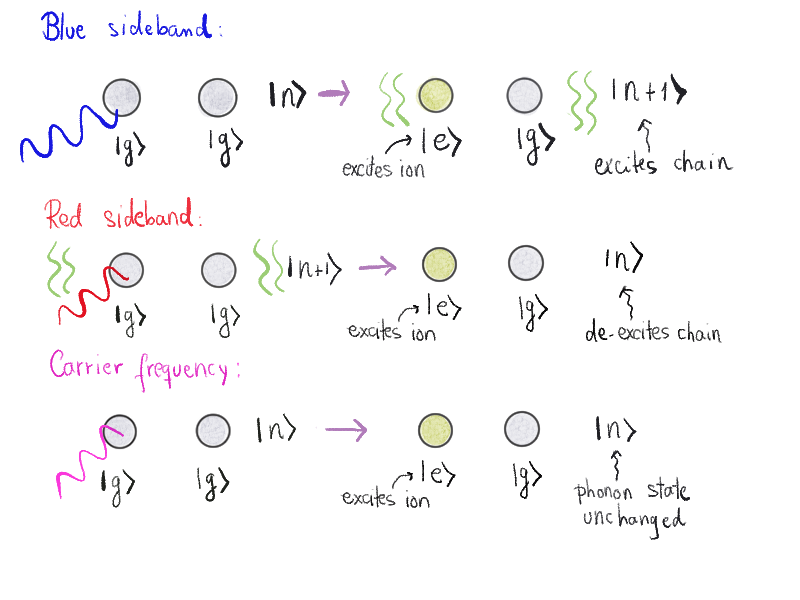 Blue sideband:
|n⟩ → |n+1⟩
|g⟩ |g⟩ |e⟩ |g⟩
excites ion
excites chain
Red sideband:
|n+1⟩ → |n⟩
|g⟩ |g⟩ |e⟩ |g⟩
excites ion
de-excites chain
Carrier frequency:
|n⟩ → |n⟩
|g⟩ |g⟩ |e⟩ |g⟩
excites ion
phonon state
unchanged